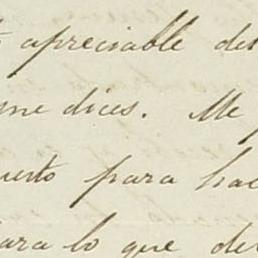 apreciable del
me dices. Me
para hac
para lo que de